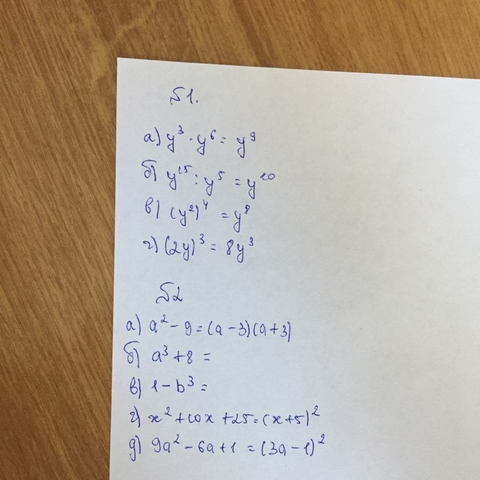 №1.
а) y³ · y⁶ = y⁹
б) y¹⁵ : y⁵ = y¹⁰
в) (y²)⁴ = y⁸
г) (2y)³ = 8y³
№2
а) a² - 9 = (a - 3)(a + 3)
б) a³ + 8 =
в) 1 - b³ =
г) x² + 10x + 25 = (x + 5)²
д) 9a² - 6a + 1 = (3a - 1)²